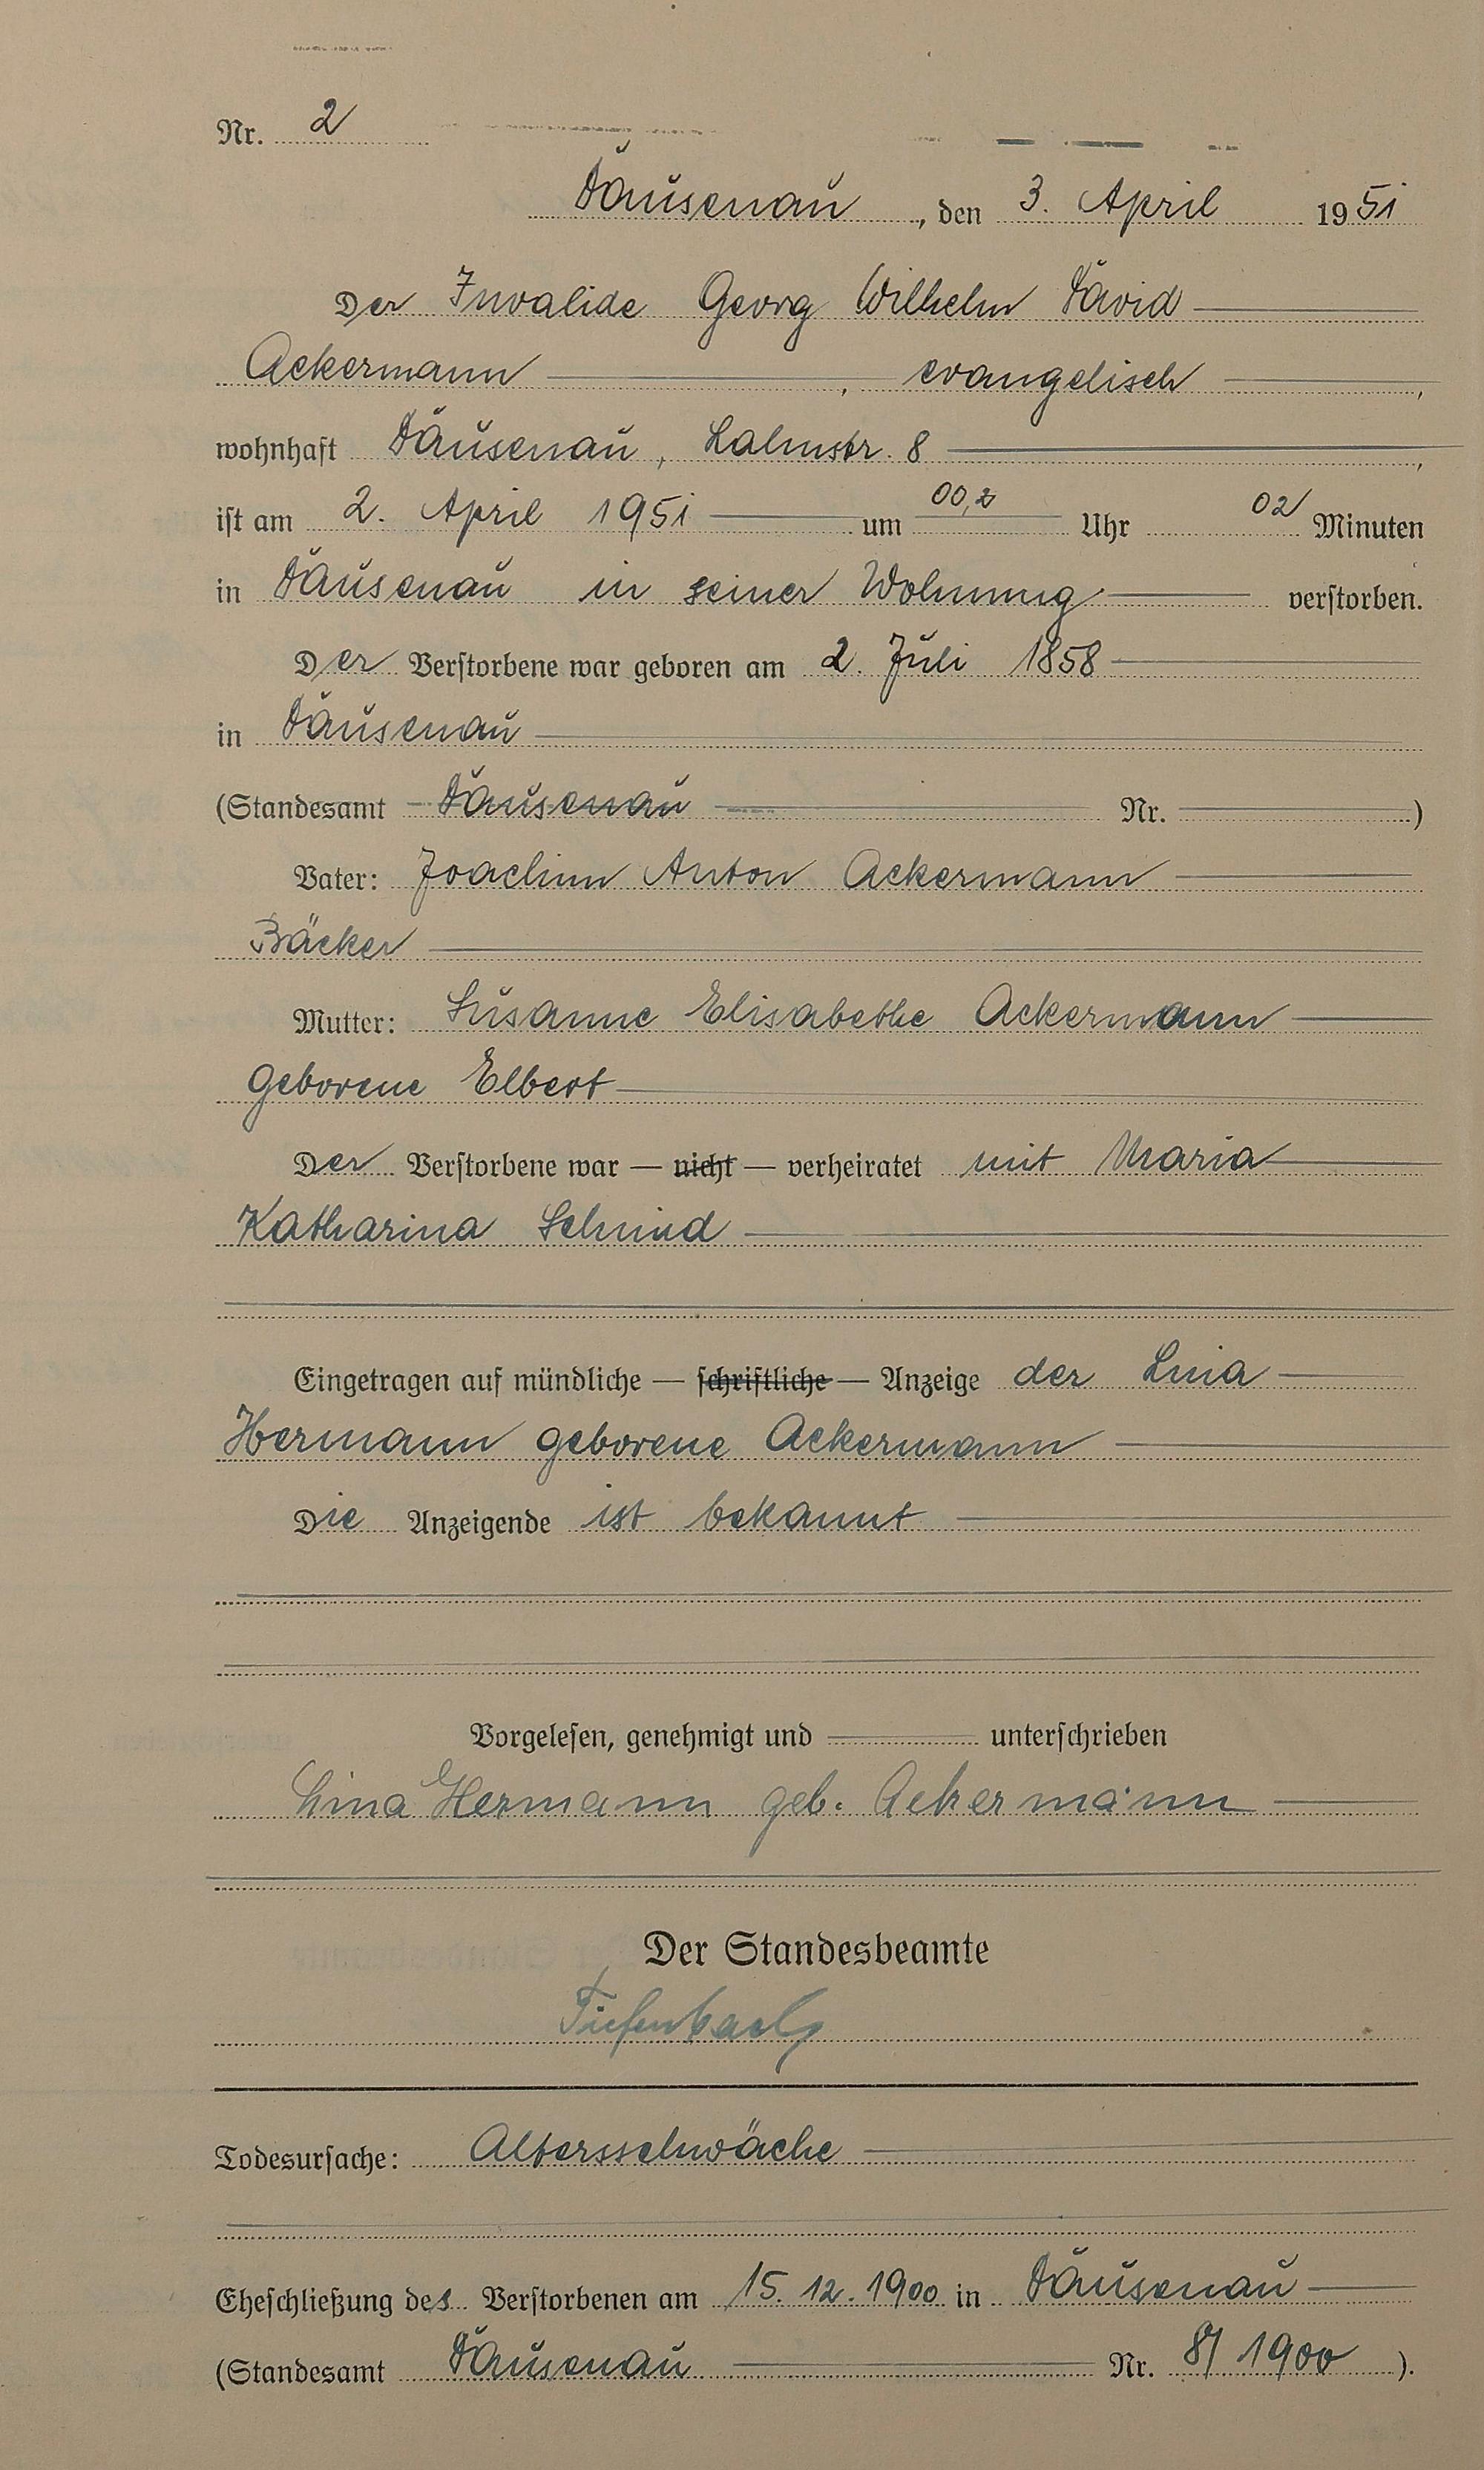 Nr. 2
Dausenau, den 3. April 1951
Der Invalide Georg Wilhelm David
Ackermann, evangelisch,
wohnhaft Dausenau, Lahnstr. 8,
ist am 2. April 1951 um 00, Uhr 02 Minuten
in Dausenau in seiner Wohnung verstorben.
Der Verstorbene war geboren am 2. Juli 1858
in Dausenau
(Standesamt Dausenau Nr. )
Vater: Joachim Anton Ackermann
Bäcker
Mutter: Susanne Elisabethe Ackermann
geborene Elbert
Der Verstorbene war — nicht — verheiratet mit Maria
Katharina Schmid
Eingetragen auf mündliche — schriftliche — Anzeige der Lina
Hermann geborene Ackermann
Die Anzeigende ist bekannt
Vorgelesen, genehmigt und unterschrieben
Lina Hermann geb. Ackermann
Der Standesbeamte
Tiefenbach
Todesursache: Altersschwäche
Eheschließung des Verstorbenen am 15.12.1900 in Dausenau
(Standesamt Dausenau Nr. 8/1900 ).